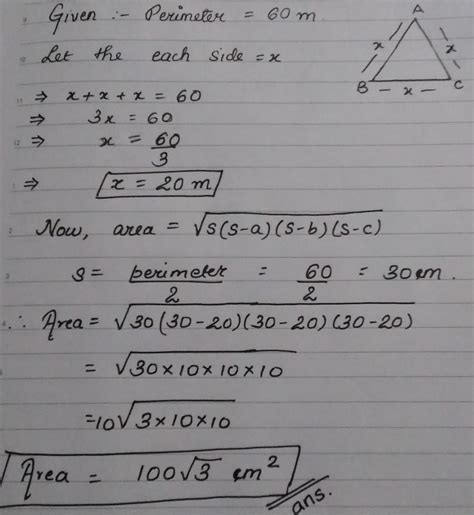 Given :- Perimeter = 60 m
Let the each side = x
⇒ x + x + x = 60
⇒ 3x = 60
⇒ x = 60/3
⇒ x = 20 m
A
x x
B - x - C
Now, area = √s(s-a)(s-b)(s-c)
S = perimeter/2 = 60/2 = 30cm.
∴ Area = √30(30-20)(30-20)(30-20)
= √30×10×10×10
=10√3×10×10
Area = 100√3 cm²
ans.